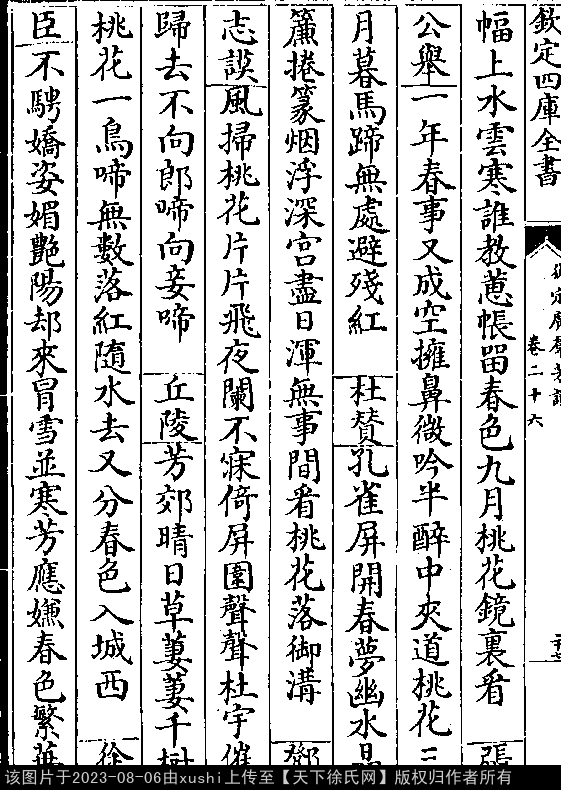 欽定四庫全書
御定廣羣芳譜
卷二十六
幅上水雲寒誰教蕙帳畱春色九月桃花鏡裏看 張
公舉一年春事又成空擁鼻微吟半醉中夾道桃花三
月暮馬蹄無處避殘紅 杜贊孔雀屏開春夢幽水晶
簾捲篆烟浮深宮盡日渾無事間看桃花落御溝 鄧
志謨風掃桃花片片飛夜闌不寐倚屏圍聲聲杜宇催
歸去不向郎啼向妾啼 丘陵芳郊晴日草萋萋千樹
桃花一鳥啼無數落紅隨水去又分春色入城西 徐
臣不騁嬌姿媚艷陽却來冒雪並寒芳應嫌春色繁華
该图片于2023-08-06由xushi上传至【天下徐氏网】版权归作者所有